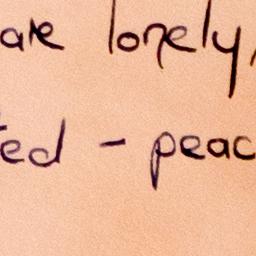 are lonely,
ed - peac